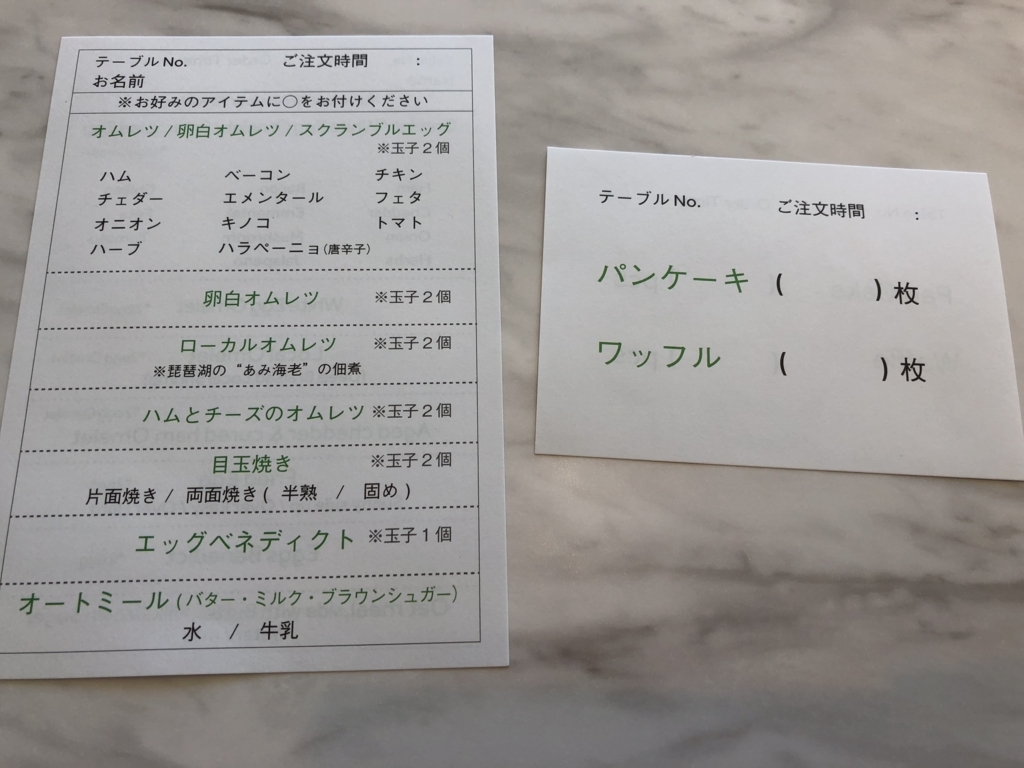 テーブル No. ご注文時間 :
お名前
※お好みのアイテムに○をお付けください
オムレツ / 卵白オムレツ / スクランブルエッグ
※玉子２個
ハム ベーコン チキン
チェダー エメンタール フェタ
オニオン キノコ トマト
ハーブ ハラペーニョ (唐辛子)
卵白オムレツ ※玉子２個
ローカルオムレツ ※玉子２個
※琵琶湖の “あみ海老” の佃煮
ハムとチーズのオムレツ ※玉子２個
目玉焼き ※玉子２個
片面焼き / 両面焼き ( 半熟 / 固め )
エッグベネディクト ※玉子１個
オートミール (バター・ミルク・ブラウンシュガー)
水 / 牛乳
テーブル No. ご注文時間 :
パンケーキ ( ) 枚
ワッフル ( ) 枚